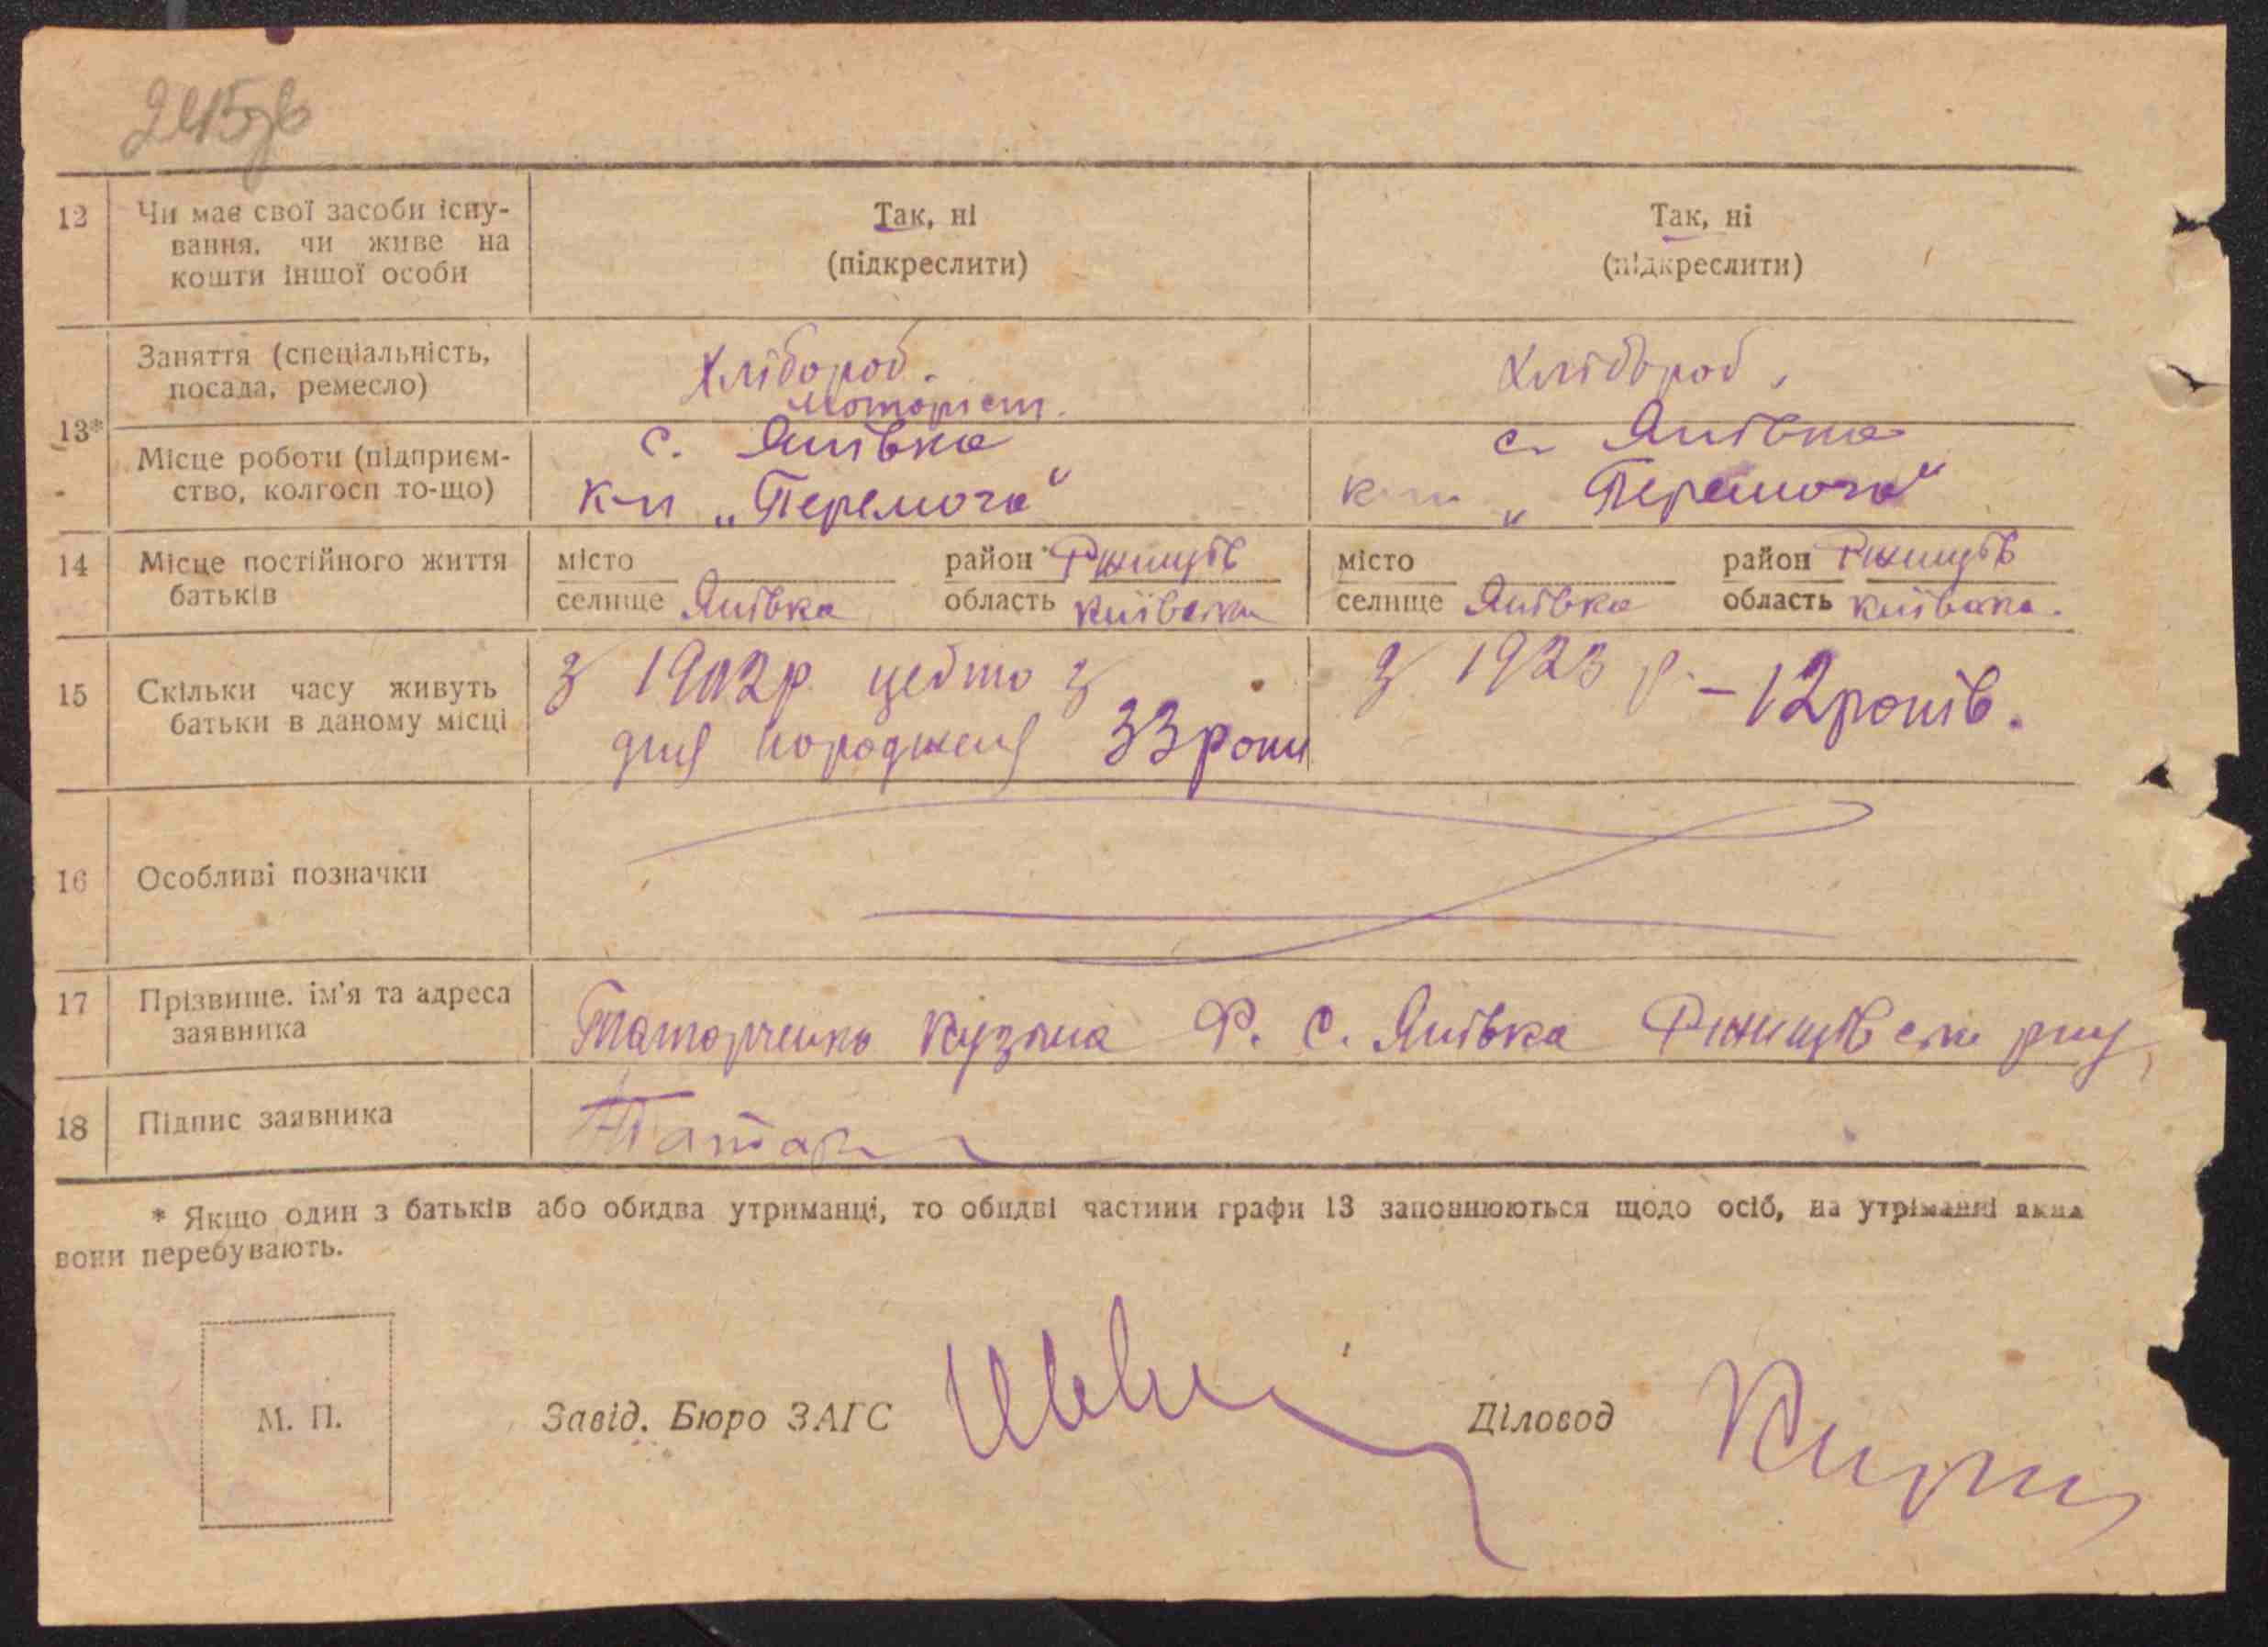 245зв
12 Чи має свої засоби існу-
вання, чи живе на
кошти іншої особи
Так, ні
(підкреслити)
Так, ні
(підкреслити)
13*
Заняття (спеціальність,
посада, ремесло)
Хлібороб.
моторист.
Хлібороб,
Місце роботи (підприєм-
ство, колгосп то-що)
с. Янівка
к-п „Перемога“
с. Янівка
„Перемога“
14 Місце постійного життя
батьків
місто район Ржищів
селище Янівка область Київська
місто район Ржищів
селище Янівка область Київська.
15 Скільки часу живуть
батьки в даному місці
З 1902р. цебто з
дня народженя 33 роки
З 1923 р. – 12 років.
16 Особливі позначки
17 Прізвище, ім'я та адреса
заявника
Татарченко Кузьма Ф. с. Янівка
18 Підпис заявника
Татар
* Якщо один з батьків або обидва утриманці, то обидві частини графи 13 заповнюються щодо осіб, на утріманні яких
вони перебувають.
М. П.
Завід. Бюро ЗАГС
Діловод